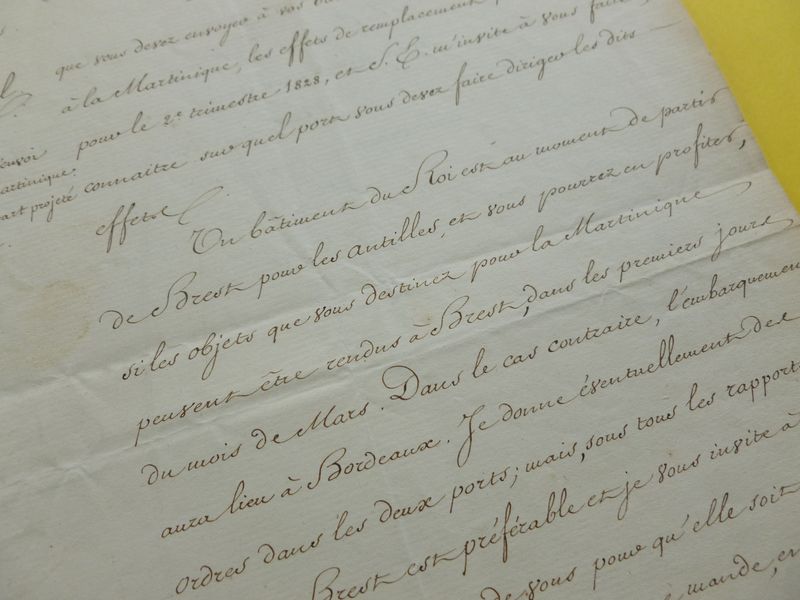 que vous devez envoyer à vos
à la Martinique, les effets de remplacement
pour le 2e trimestre 1828, et S. E. m'invite à vous faire
connaitre sur quel port vous devez faire diriger les dits
effets.
envoi
artinique.
art projeté
Un bâtiment du Roi est au moment de partir
de Brest pour les antilles, et vous pourrez en profiter,
si les objets que vous destinez pour la Martinique
peuvent être rendus à Brest, dans les premiers jours
du mois de Mars. Dans le cas contraire, l'embarquement
aura lieu à Bordeaux. Je donne éventuellement des
ordres dans les deux ports; mais, sous tous les rapports
Brest est préférable et je vous invite à
de vous pour qu'elle soit
mande, en